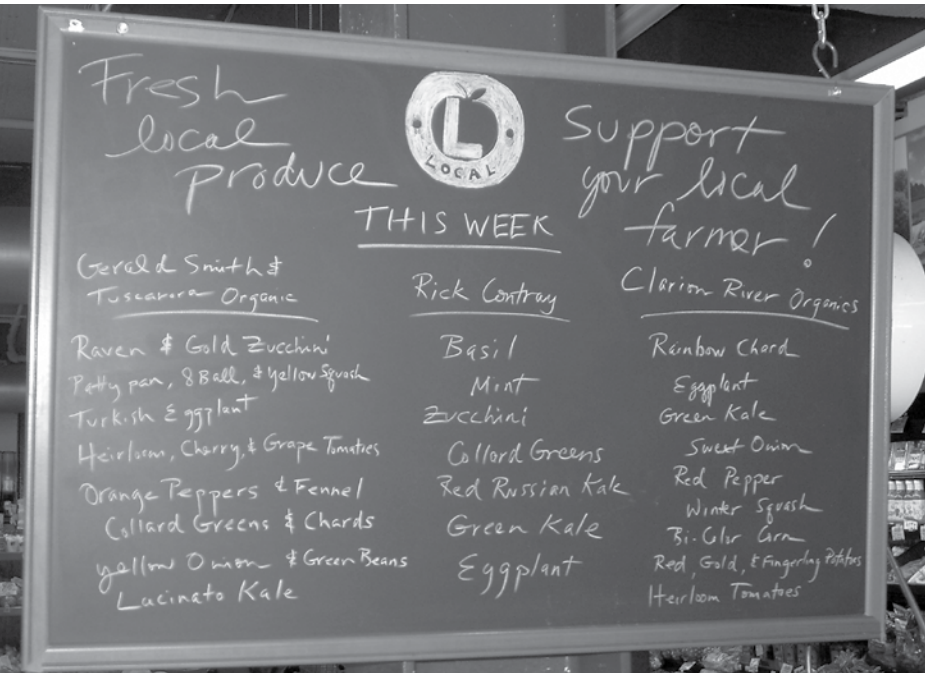 Fresh
local
produce
L
LOCAL
Support
your local
farmer!
THIS WEEK
Gerald Smith &
Tuscarora Organic
Raven & Gold Zucchini
Patty pan, 8 Ball, & yellow Squash
Turkish Eggplant
Heirloom, Cherry, & Grape Tomatoes
Orange Peppers & Fennel
Collard Greens & Chards
yellow Onion & Green Beans
Lacinato Kale
Rick Contray
Basil
Mint
Zucchini
Collard Greens
Red Russian Kale
Green Kale
Eggplant
Clarion River Organics
Rainbow Chard
Eggplant
Green Kale
Sweet Onion
Red Pepper
Winter Squash
Bi-Color Corn
Red, Gold, & Fingerling Potatoes
Heirloom Tomatoes